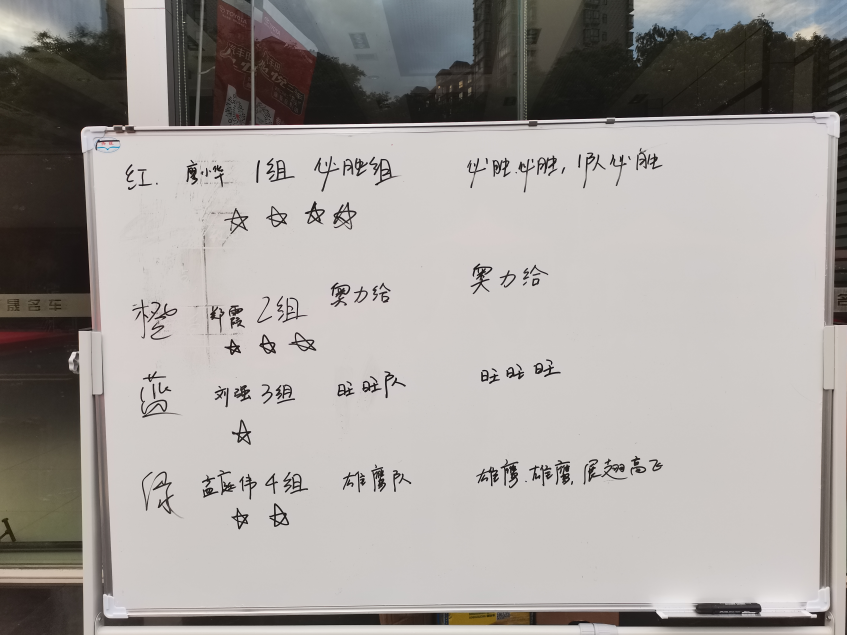 红. 廖小华 1组 必胜组 必胜.必胜,1队必胜
☆ ☆ ☆ ☆
橙 郑霞 2组 奥力给 奥力给
☆ ☆ ☆
蓝 刘强 3组 旺旺队 旺旺旺
☆
绿 孟庭伟 4组 雄鹰队 雄鹰.雄鹰,展翅高飞
☆ ☆
晟名车